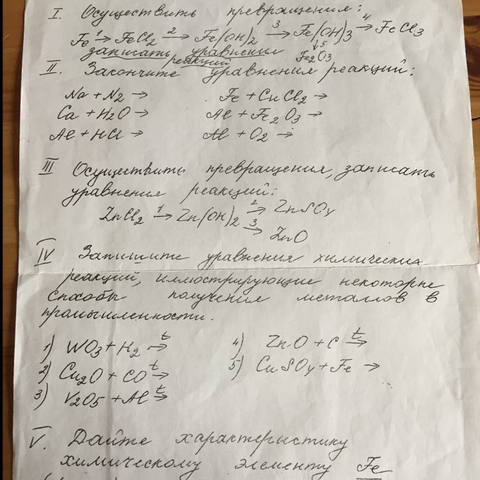 I. Осуществить превращения:
Fe 1→ FeCl2 2→ Fe(OH)2 3→ Fe(OH)3 4→ FeCl3
↓5
записать уравнения Fe2O3
реакций
II. Закончите уравнения реакций:
Na + N2 → Fe + CuCl2 →
Ca + H2O → Al + Fe2O3 →
Al + HCl → Al + O2 →
III Осуществить превращения, записать
уравнения реакций:
ZnCl2 1→ Zn(OH)2 2→ ZnSO4
3→ ZnO
IV Запишите уравнения химических
реакций, иллюстрирующие некоторые
способы получения металлов в
промышленности.
1) WO3 + H2 t→ 4) ZnO + C t→
2) Cu2O + CO t→ 5) CuSO4 + Fe →
3) V2O5 + Al t→
V. Дайте характеристику
химическому элементу Fe